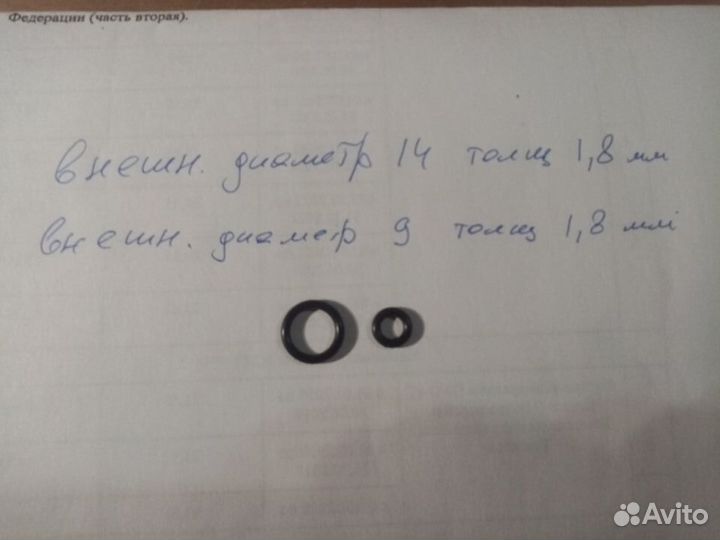 Федерации (часть вторая).
внешн. диаметр 14 толщ 1,8 мм
внешн. диамефр 9 толщ 1,8 мм
Avito